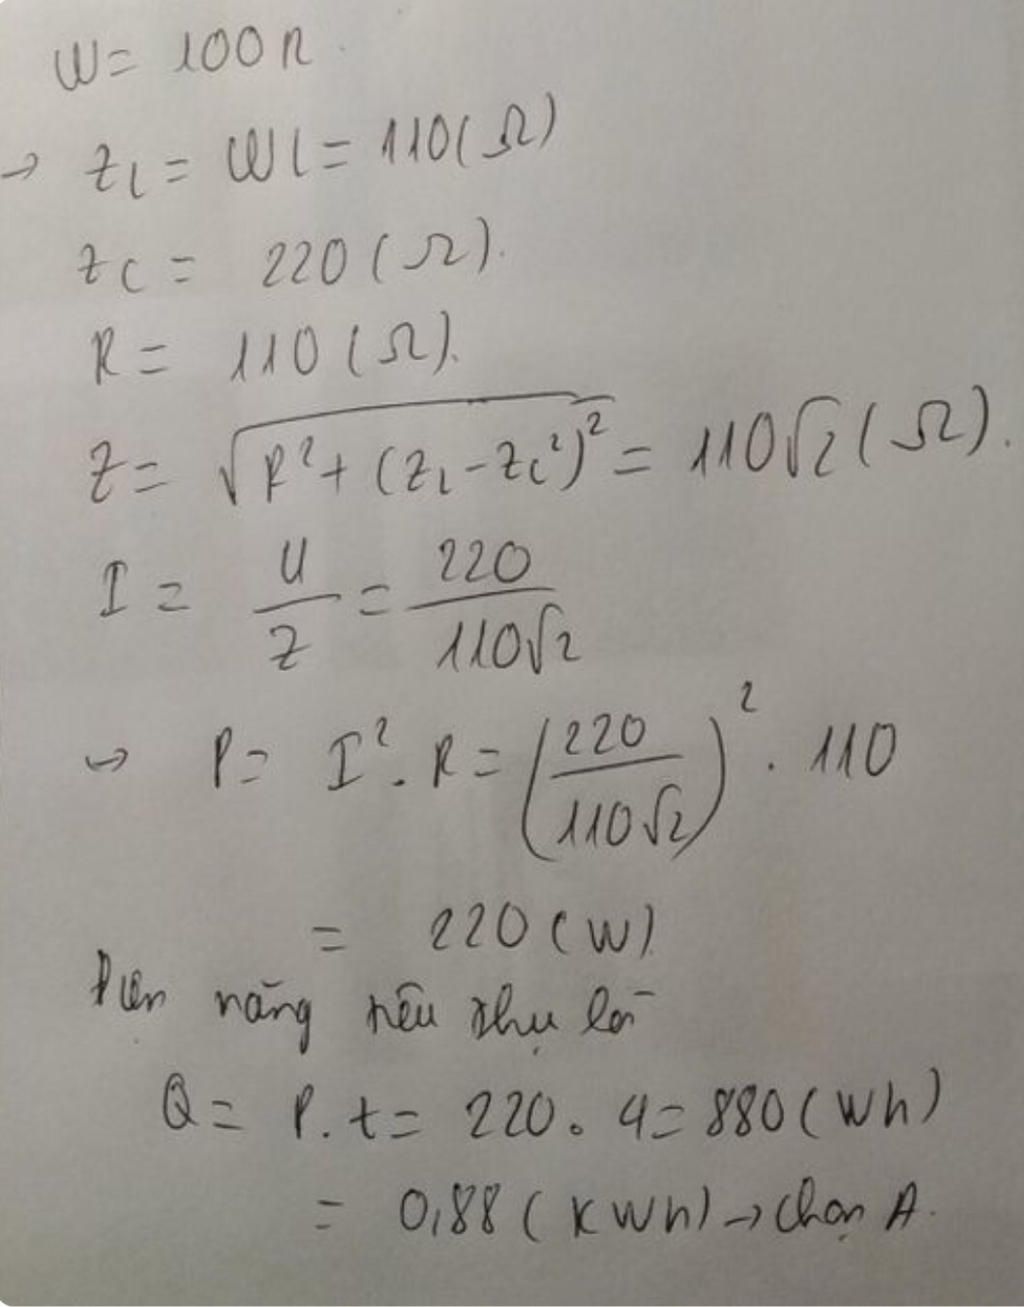 W = 100π
→ ZL = WL = 110(Ω)
ZC = 220 (Ω).
R = 110 (Ω).
Z = √(R² + (ZL - ZC²)²) = 110√2 (Ω).
I = U/Z = 220/110√2
→ P = I². R = (220/110√2)² . 110
= 220 (W)
Điện năng tiêu thụ là
Q = P.t = 220 . 4 = 880 (Wh)
= 0,88 (KWh) → chọn A.